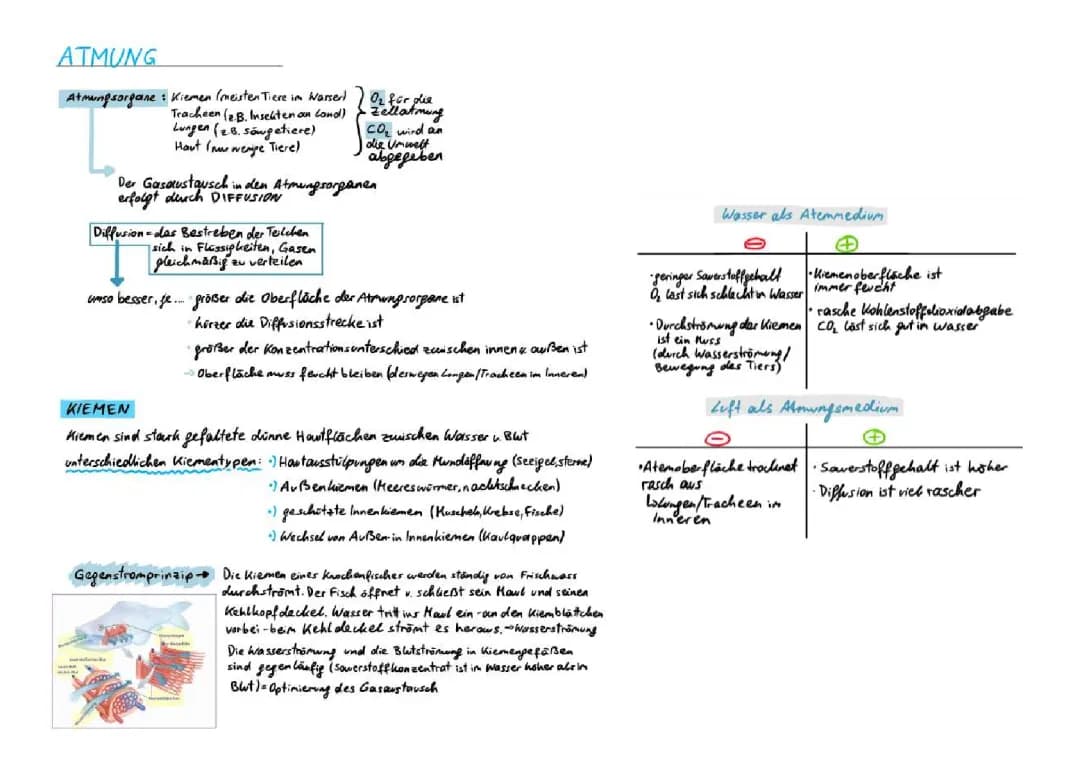 ATMUNG
Atmungsorgane : Kiemen (meisten Tiere im Wasser)
Tracheen (z.B. Insekten an Land)
Lungen (z.B. säugetiere)
Haut (nur wenige Tiere)
O₂ für die
Zellatmung
CO₂ wird an
die Umwelt
abgegeben
Der Gasaustausch in den Atmungsorganen
erfolgt durch DIFFUSION
Diffusion = das Bestreben der Teilchen
sich in Flüssigkeiten, Gasen
gleichmäßig zu verteilen
umso besser, je... · größer die Oberfläche der Atmungsorgane ist
· kürzer die Diffusionsstrecke ist
· größer der Konzentrationsunterschied zwischen innen & außen ist
→ Oberfläche muss feucht bleiben (deswegen Lungen/Tracheen im Inneren)
KIEMEN
Kiemen sind stark gefaltete dünne Hautflächen zwischen Wasser u. Blut
unterschiedlichen Kiementypen: •) Hautausstülpungen um die Mundöffnung (Seeigel,sterne)
•) Außenkiemen (Meereswürmer, nacktschnecken)
•) geschützte Innenkiemen (Muscheln, Krebse, Fische)
•) Wechsel von Außen-in Innenkiemen (Kaulquappen)
Gegenstromprinzip → Die Kiemen eines Knochenfischer werden ständig von Frischwass
durchströmt. Der Fisch öffnet u. schließt sein Maul und seinen
Kehlkopfdeckel. Wasser tritt ins Maul ein - an den Kiemblättchen
vorbei - beim Kehldeckel strömt es heraus. → Wasserströmung
Die Wasserströmung und die Blutströmung in Kiemengefäßen
sind gegenläufig (Sauerstoffkonzentrat ist im Wasser höher als im
Blut) = Optimierung des Gasaustausch
Wasser als Atemmedium
⊖ ⊕
· geringer Sauerstoffgehalt
O₂ läst sich schlecht in Wasser
· Durchströmung der Kiemen
ist ein Muss
(durch Wasserströmung/
Bewegung des Tiers)
· Kiemenoberfläche ist
immer feucht
· rasche Kohlenstoffdioxidabgabe
CO₂ läst sich gut in wasser
Luft als Atmungsmedium
⊖ ⊕
· Atemoberfläche trocknet
rasch aus
Lungen/Tracheen im
Inneren
· Sauerstoffgehalt ist höher
· Diffusion ist viel rascher